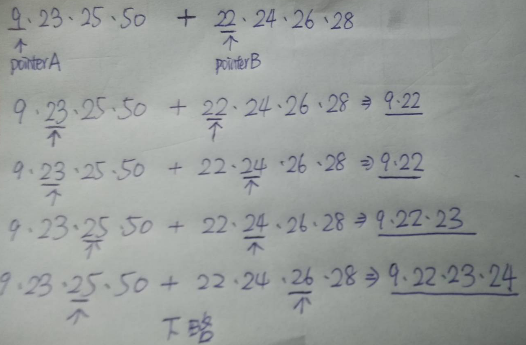 9·23·25·50 + 22·24·26·28
pointerA pointerB
9·23·25·50 + 22·24·26·28 ⇒ 9·22
9·23·25·50 + 22·24·26·28 ⇒ 9·22
9·23·25·50 + 22·24·26·28 ⇒ 9·22·23
9·23·25·50 + 22·24·26·28 ⇒ 9·22·23·24
下略